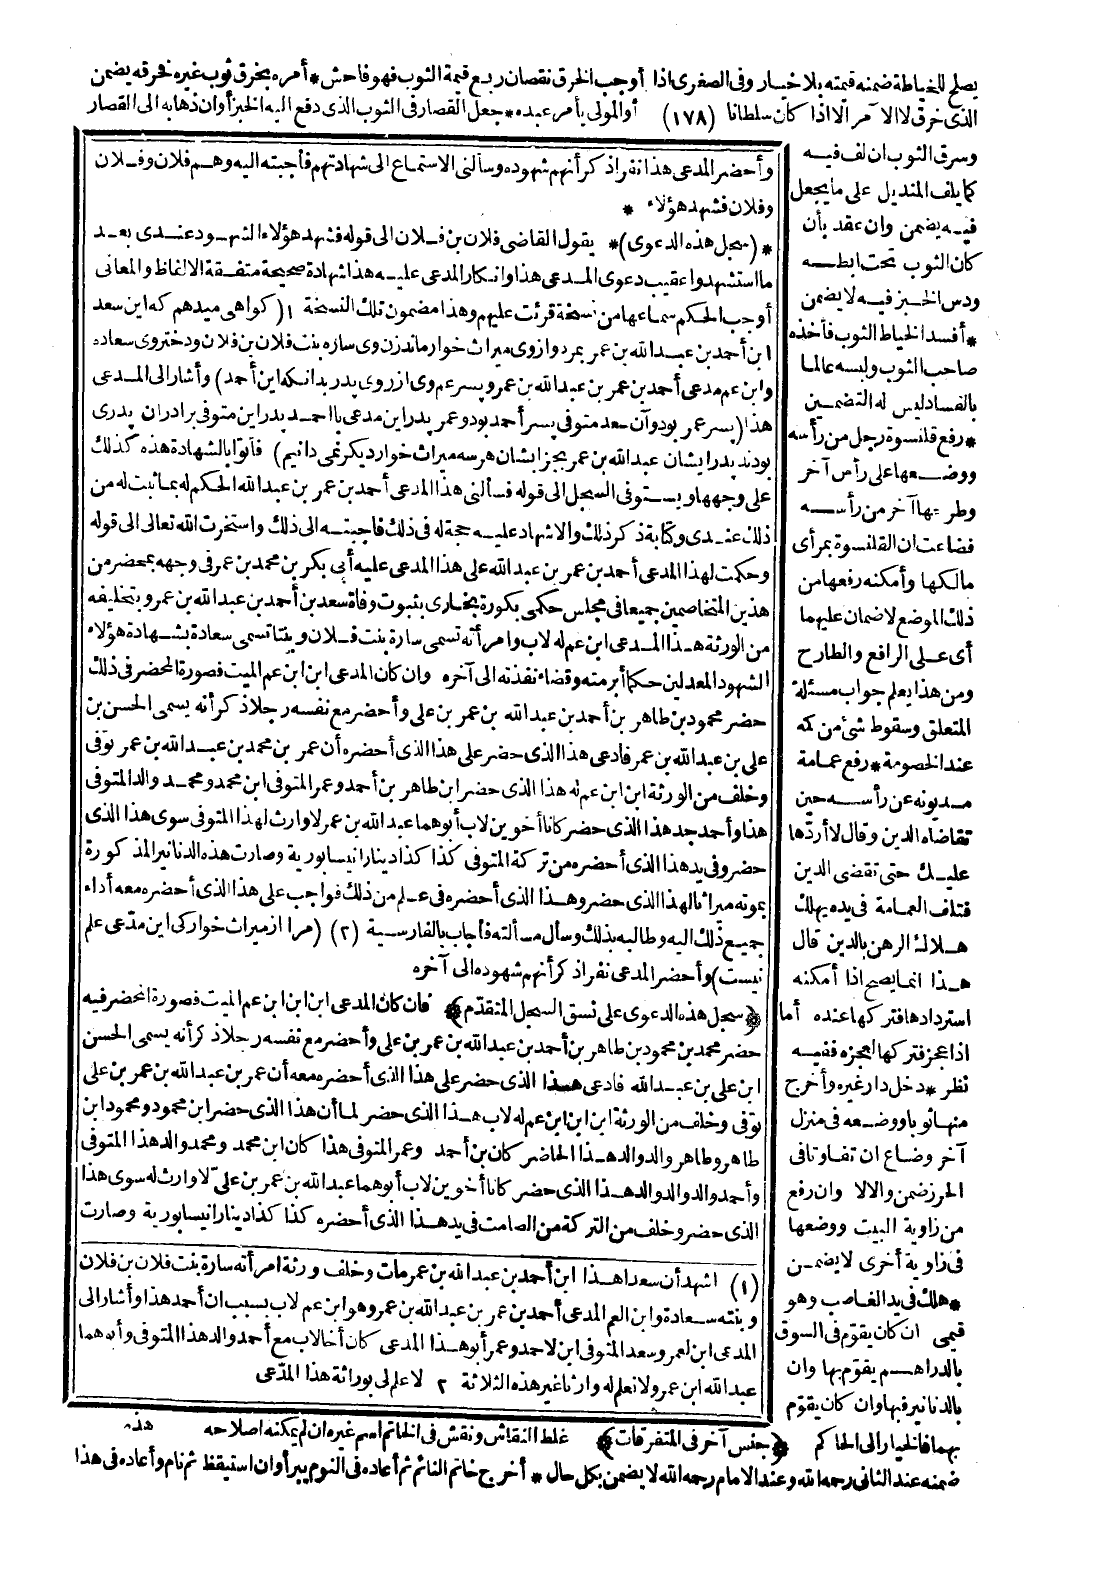 يصلح للخياطة ضمنه قيمته بلا خيار وفى الصغرى اذا أوجب الخرق نقصان ربع قيمة الثوب فهو فاحش * أمره بخرق ثوب غيره فخرقه يضمن
الذى خرق لا الآمر الا اذا كان سلطانا (١٧٨) أو المولى يأمر عبده * جعل القصار فى الثوب الذى دفع اليه الخبز أو ان ذهابه الى القصار
وسرق الثوب ان لف فيه
كما يلف المنديل على ما يجعل
فيه يضمن وان عقد بأن
كان الثوب تحت ابطه
ودس الخبز فيه لا يضمن
* أفسد الخياط الثوب فأخذه
صاحب الثوب ولبسه عالما
بالفساد ليس له التضمين
* رفع قلنسوة رجل من رأسه
ووضعها على رأس آخر
وطرحها آخر من رأسه
فضاعت ان القلنسوة بمرأى
مالكها وأمكنه رفعها من
ذلك الموضع لا ضمان عليهما
أى على الرافع والطارح
ومن هذا يعلم جواب مسئلة
المتعلق وسقوط شئ من كمه
عند الخصومة * رفع عمامة
مديونه عن رأسه حين
تقاضاه الدين وقال لا أردها
عليك حتى تقضى الدين
فتلف العمامة فى يده يهلك
هلاك الرهن بالدين قال
هذا انما يصح اذا أمكنه
استردادها فتركها عنده أما
اذا عجز فتركها لعجزه ففيه
نظر * دخل دار غيره وأخرج
منها ثوبا ووضعه فى منزل
آخر وضاع ان تفاوتا فى
الحرز ضمن والا لا وان رفع
من زاوية البيت ووضعها
فى زاوية أخرى لا يضمن
* هلك فى يد الغاصب وهو
قيمى ان كان يقوم فى السوق
بالدراهم يقوم بها وان
بالدنانير فبها وان كان يقوم
بهما فالخيار الى الحاكم ﴿جنس آخر فى المتفرقات﴾ غلط النقاش ونقش فى الخاتم اسم غيره ان لم يمكنه اصلاحه
ضمنه عند الثانى رحمه الله وعند الامام رحمه الله لا يضمن بكل حال * أخرج خاتم النائم ثم أعاده فى النوم يبرأ وان استيقظ ثم نام وأعاده فى هذا
هذه
وأحضر المدعى هذا نفرا ذكر أنهم شهوده وسألنى الاستماع الى شهادتهم فأجبته اليه وهم فلان وفلان
وفلان فشهد هؤلاء *
* (سجل هذه الدعوى) * يقول القاضى فلان بن فلان الى قوله فشهد هؤلاء الشهود عندى بعد
ما استشهدوا عقيب دعوى المدعى هذا وانكار المدعى عليه هذا شهادة صحيحة متفقة الالفاظ والمعانى
أوجب الحكم سماعها من نسخة قرئت عليهم وهذا مضمون تلك النسخة ١ (كواهى ميدهم كه اين سعد
ابن أحمد بن عبد الله بن عمر بمرد وازوى ميراث خوار ماند زن وى ساره بنت فلان بن فلان ودختروى سعاده
وابن عم مدعى أحمد بن عمر بن عبد الله بن عمرو پسر عم وى از روى پدر بدانكه اين أحمد) وأشار الى المدعى
هذا (پسر عمر بود وآن سعد متوفى پسر أحمد بود وعمر پدر اين مدعى با احمد پدر اين متوفى برادران پدرى
بودند پدر ايشان عبد الله بن عمر بجز ايشان هر سه ميراث خوار ديكر نمى دانيم) فأتوا بالشهادة هذه كذلك
على وجهها ويستوفى السجل الى قوله فسألنى هذا المدعى أحمد بن عمر بن عبد الله الحكم له بما ثبت له من
ذلك عندى وكتابة ذكر ذلك والاشهاد عليه حجة له فى ذلك فأجبته الى ذلك واستخرت الله تعالى الى قوله
وحكمت لهذا المدعى أحمد بن عمر بن عبد الله على هذا المدعى عليه أبى بكر بن محمد بن عمر فى وجهه بمحضر من
هذين المتخاصمين جميعا فى مجلس حكمى بكورة بخارى بثبوت وفاة سعد بن أحمد بن عبد الله بن عمر وبتخليفه
من الورثة هذا المدعى ابن عم له لاب وامرأته تسمى سارة بنت فلان وبنتا تسمى سعادة بشهادة هؤلاء
الشهود المعدلين حكما أبرمته وقضاء نفذته الى آخره وان كان المدعى ابن ابن عم الميت فصورة المحضر فى ذلك
حضر محمود بن طاهر بن أحمد بن عبد الله بن عمر بن على وأحضر مع نفسه رجلا ذكر أنه يسمى الحسن بن
على بن عبد الله بن عمر فادعى هذا الذى حضر على هذا الذى أحضره أن عمر بن محمد بن عبد الله بن عمر توفى
وخلف من الورثة ابن ابن عم له هذا الذى حضر ابن طاهر بن أحمد وعمر المتوفى ابن محمد ومحمد والد المتوفى
هذا وأحمد جد هذا الذى حضر كانا أخوين لاب أبوهما عبد الله بن عمر لا وارث لهذا المتوفى سوى هذا الذى
حضر وفى يد هذا الذى أحضره من تركة المتوفى كذا كذا دينارا نيسابورية وصارت هذه الدنانير المذكورة
بموته ميراثا لهذا الذى حضر وهذا الذى أحضره فى علم من ذلك فواجب على هذا الذى أحضره معه أداء
جميع ذلك اليه وطالبه بذلك وسأل مسألته فأجاب بالفارسية (٢) (مرا از ميراث خواركى اين مدعى علم
نيست) وأحضر المدعى نفرا ذكر أنهم شهوده الى آخره
﴿سجل هذه الدعوى على نسق السجل المتقدم﴾ فان كان المدعى ابن ابن ابن عم الميت فصورة المحضر فيه
حضر محمد بن محمود بن طاهر بن أحمد بن عبد الله بن عمر بن على وأحضر مع نفسه رجلا ذكر أنه يسمى الحسن
ابن على بن عبد الله فادعى هذا الذى حضر على هذا الذى أحضره معه أن عمر بن عبد الله بن عمر بن على
توفى وخلف من الورثة ابن ابن ابن عم له لاب هذا الذى حضر لما أن هذا الذى حضر ابن محمود ومحمود ابن
طاهر وطاهر والد والد هذا الحاضر كان بن أحمد وعمر المتوفى هذا كان ابن محمد ومحمد والد هذا المتوفى
وأحمد والد والد والد هذا الذى حضر كانا أخوين لاب أبوهما عبد الله بن عمر بن على لا وارث له سوى هذا
الذى حضر وخلف من التركة من الصامت فى يد هذا الذى أحضره كذا كذا دينارا نيسابورية وصارت
(١) اشهد أن سعدا هذا ابن أحمد بن عبد الله بن عمر مات وخلف ورثة امرأته سارة بنت فلان بن فلان
وبنته سعادة وابن العم المدعى أحمد بن عمر بن عبد الله بن عمر وهو ابن عم لاب بسبب ان أحمد هذا وأشار الى
المدعى ابن لعمر وسعد المتوفى ابن لاحمد وعمر أبو هذا المدعى كان أخا لاب مع أحمد والد هذا المتوفى وأبوهما
عبد الله ابن عمر ولا نعلم له وارثا غير هذه الثلاثة ٢ لا علم لى بوراثة هذا المدعى